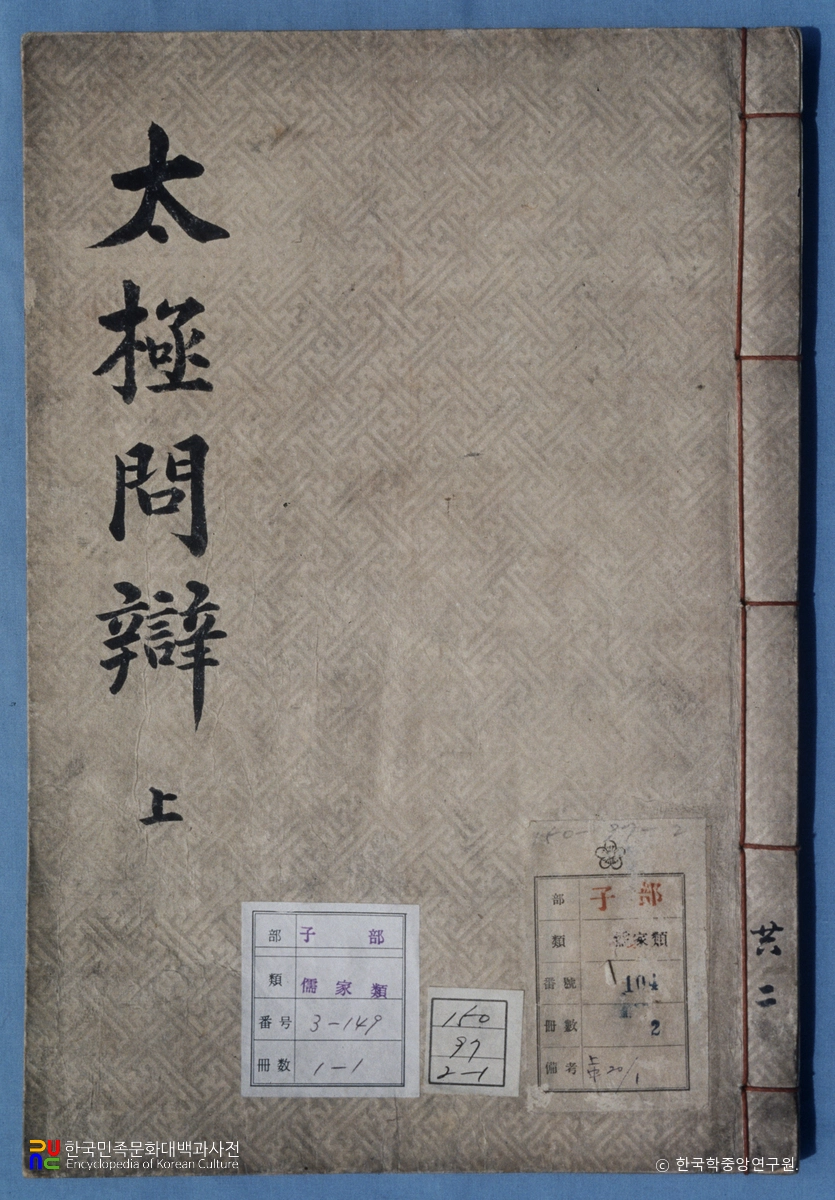 太極問辯
上
共二
部 子部
類 儒家類
番号 3-149
冊数 1-1
150
97
2-1
部 子部
類 儒家類
番號
冊數 2
備考 20/1
한국민족문화대백과사전
Encyclopedia of Korean Culture
© 한국학중앙연구원